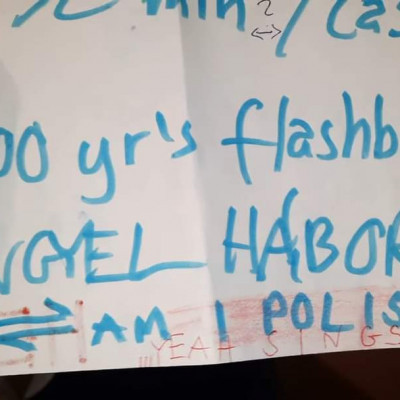 2 min / Cas
00 yr's flashb
NGYEL HABOR
AM I POLIS
YEAH SINGS